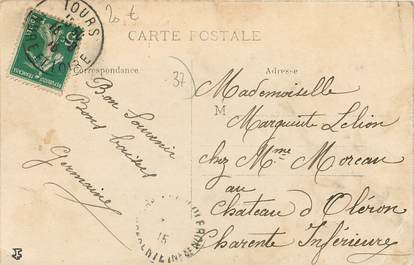 TOURS
20 €
CARTE POSTALE
Correspondance
37
Adresse
Mademoiselle
M
Marguerite Lelion
chez Mme Moreau
au
Chateau d'Oléron
Charente Inférieure
Bon Souvenir
Bons baisers
Germaine
15